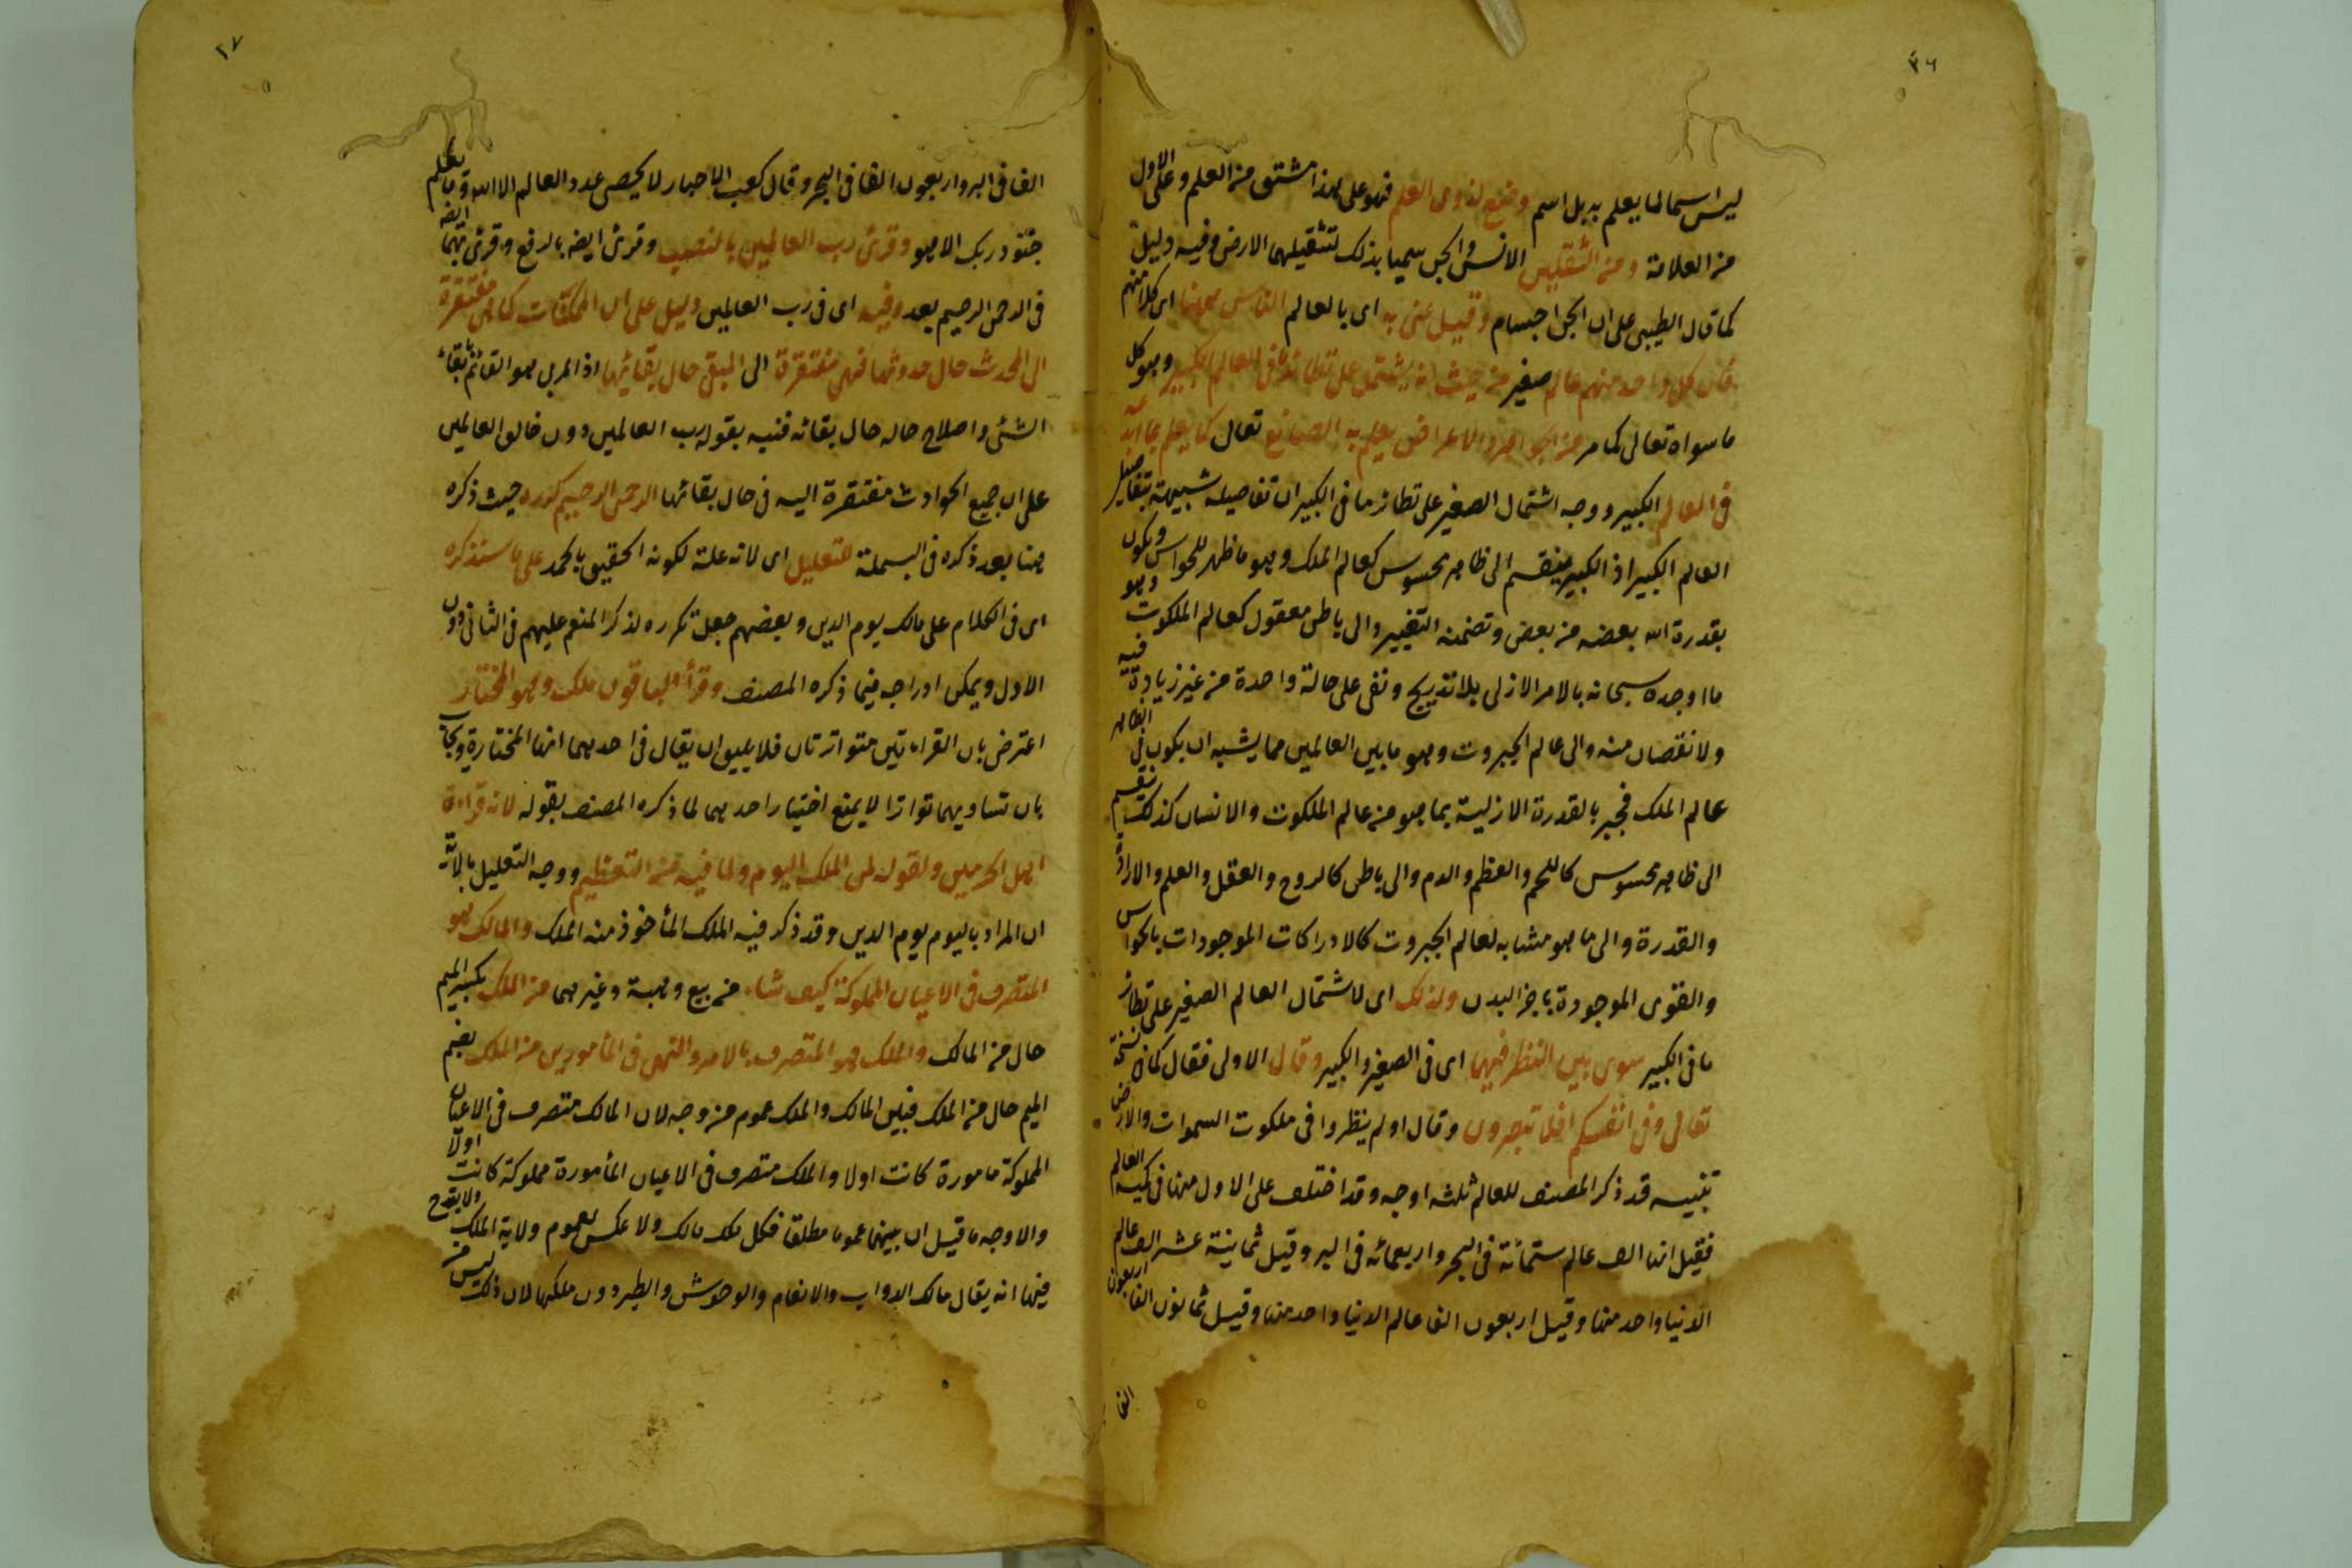 ٢٦
ليس اسما لما يعلم به بل اسم وضع لذوى العلم فهو على هذا مشتق من العلم وعلى الاول
من العلامة ومن الثقلين الانس والجن سميا بذلك لتثقيلهما الارض وفيه دليل
كما قال الطيبى على ان الجن اجسام وقيل عنى به اى بالعالم الناس ههنا اى كل منهم
فان كل واحد منهم عالم صغير من حيث انه يشتمل على نظائر ما فى العالم الكبير وهو كل
ما سواه تعالى كما مر من الجواهر والاعراض يعلم به الصانع تعالى كما يعلم بما ابدعه
فى العالم الكبير ووجه اشتمال الصغير على نظائر ما فى الكبير ان تفاصيله شبيهة بتفاصيل
العالم الكبير اذ الكبير ينقسم الى ظاهر محسوس كعالم الملك وهو ما ظهر للحواس ويكون
بقدرة الله بعضه من بعض وتضمنه التغيير والى باطن معقول كعالم الملكوت وهو
ما اوجده سبحانه بالامر الازلى بلا تدريج وبقى على حالة واحدة من غير زيادة فيه
ولا نقصان منه والى عالم الجبروت وهو ما بين العالمين مما يشبه ان يكون فى الظاهر
عالم الملك فجبر بالقدرة الازلية بما هو من عالم الملكوت والانسان كذلك ينقسم
الى ظاهر محسوس كاللحم والعظم والدم والى باطن كالروح والعقل والعلم والارادة
والقدرة والى ما هو مشابه لعالم الجبروت كالادراكات الموجودات بالحواس
والقوى الموجودة باجزاء البدن ولذلك اى لاشتمال العالم الصغير على نظائر
ما فى الكبير سوى بين النظر فيهما اى فى الصغير والكبير وقال الاولى فقال كما فى نسخة
تعالى وفى انفسكم افلا تبصرون وقال اولم ينظروا فى ملكوت السموات والارض
تنبيه قد ذكر المصنف للعالم ثلثه اوجه وقد اختلف على الاول منها فى كمية العالم
فقيل انها الف عالم ستمائة فى البحر واربعمائه فى البر وقيل ثمانية عشر الف عالم
الدنيا واحد منها وقيل اربعون الف عالم الدنيا واحد منها وقيل ثمانون الفا اربعون
الفا
٢٧
الفا فى البر واربعون الفا فى البحر وقال كعب الاحبار لا يحصى عدد العالم الا الله وما يعلم
جنود ربك الا هو وقرئ رب العالمين بالنصب وقرئ ايضه بالرفع وقرئ بهما ايضه
فى الرحمن الرحيم بعد وفيه اى فى رب العالمين دليل على ان الممكنات كما هى مفتقرة
الى المحدث حال حدوثها فهى مفتقرة الى المبقى حال بقائها اذ المربى هو القائم بابقاء
الشئ واصلاح حاله حال بقائه فنبه بقوله رب العالمين دون خالق العالمين
على ان جميع الحوادث مفتقرة اليه فى حال بقائها الرحمن الرحيم كرره حيث ذكره
هنا بعد ذكره فى البسملة للتعليل اى لانه علة لكونه الحقيق بالحمد على ما سنذكره
اى فى الكلام على مالك يوم الدين وبعضهم جعل تكرره لذكر المنعم عليهم فى الثانى دون
الاول ويمكن ادراجه فيما ذكره المصنف وقرأ الباقون ملك وهو المختار
اعترض بان القراءتين متواترتان فلا يليق ان يقال فى احديهما انها المختارة ويجاب
بان تساويهما تواترا لا يمنع اختيار احديهما لما ذكره المصنف بقوله لانه قراءة
اهل الحرمين ولقوله لمن الملك اليوم ولما فيه من التعظيم ووجه التعليل بالاية
ان المراد باليوم يوم الدين وقد ذكر فيه الملك المأخوذ منه الملك والمالك هو
المتصرف فى الاعيان المملوكة كيف شاء من بيع وهبة وغيرهما من الملك بكسر الميم
حال من المالك والملك هو المتصرف بالامر والنهى فى المأمورين من الملك بضم
الميم حال من الملك فبين المالك والملك عموم من وجه لان المالك متصرف فى الاعيان
المملوكة مامورة كانت اولا والملك متصرف فى الاعيان المأمورة مملوكة كانت اولا
والاوجه ما قيل ان بينهما عموما مطلقا فكل ملك مالك ولا عكس لعموم ولاية الملك ولا يقدح
فيها انه يقال مالك الدواب والانعام والوحوش والطير دون ملكها لان ذلك ليس من